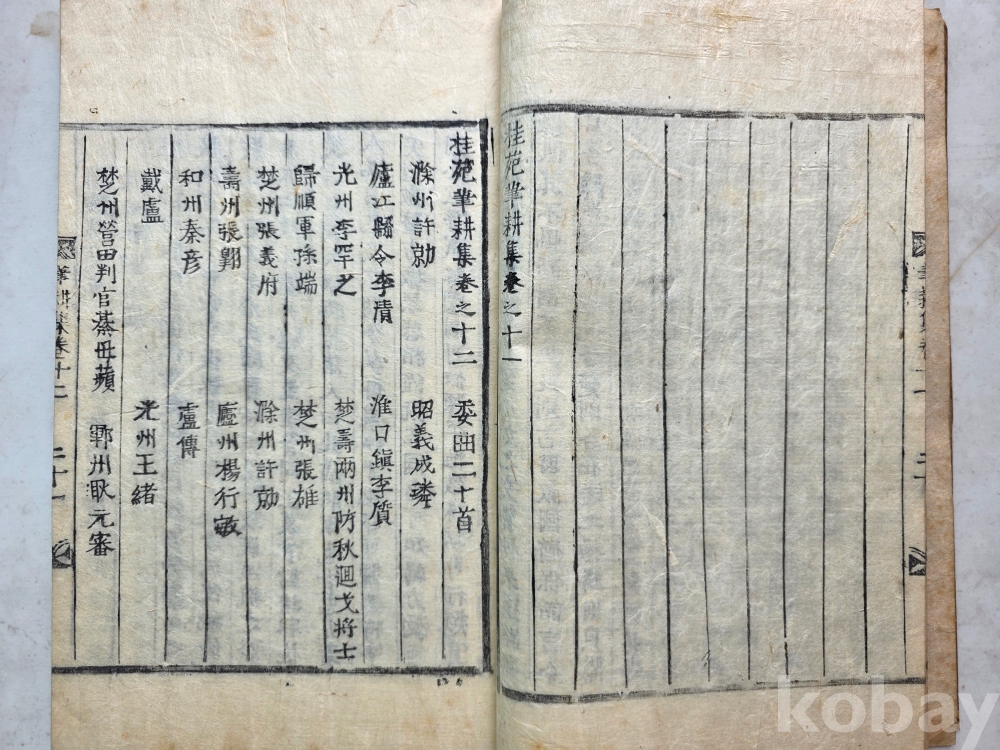 桂苑筆耕集卷之十一
桂苑筆耕集卷之十二 委曲二十首
滁州許勍 昭義成璘
廬江縣令李清 淮口鎭李質
光州李罕之 楚壽兩州防秋廻戈將士
歸順軍孫端 楚州張雄
楚州張義府 滁州許勍
壽州張翺 廬州楊行敏
和州秦彦 盧傳
戴盧 光州王緖
楚州營田判官綦毋蘋 鄆州耿元審
筆耕集卷十二 二十一
kobay